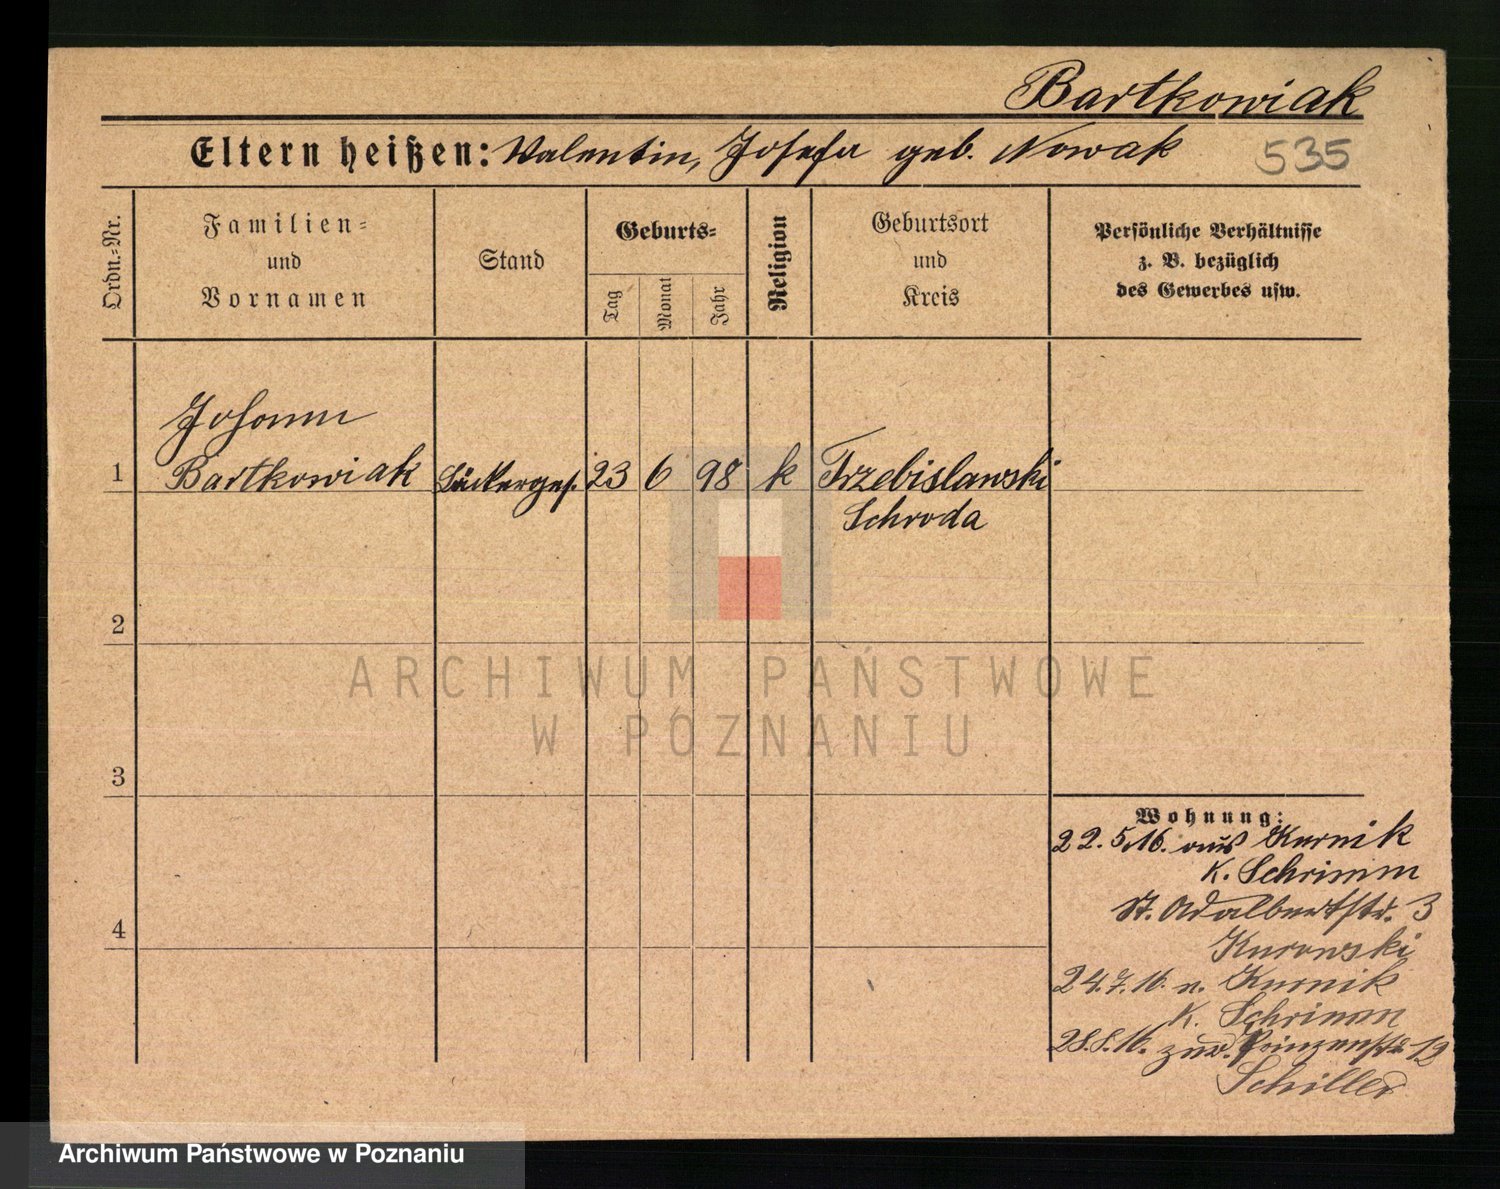 Bartkowiak
Eltern heißen: Valentin, Josefa geb. Nowak
535
Ordn.=Nr.
Familien=
und
Vornamen
Stand
Geburts=
Tag
Monat
Jahr
Religion
Geburtsort
und
Kreis
Persönliche Verhältnisse
z. B. bezüglich
des Gewerbes usw.
Johann
1 Bartkowiak Bäckerges. 23 6 98 k Trzebislawski
Schroda
2
3
4
Wohnung:
22.5.16. aus Kurnik
K. Schrimm
St. Adalbertstr. 3
Kurowski
24.7.16. n. Kurnik
K. Schrimm
28.8.16. zur. Prinzenstr. 12
Schiller
ARCHIWUM PAŃSTWOWE
W POZNANIU
Archiwum Państwowe w Poznaniu